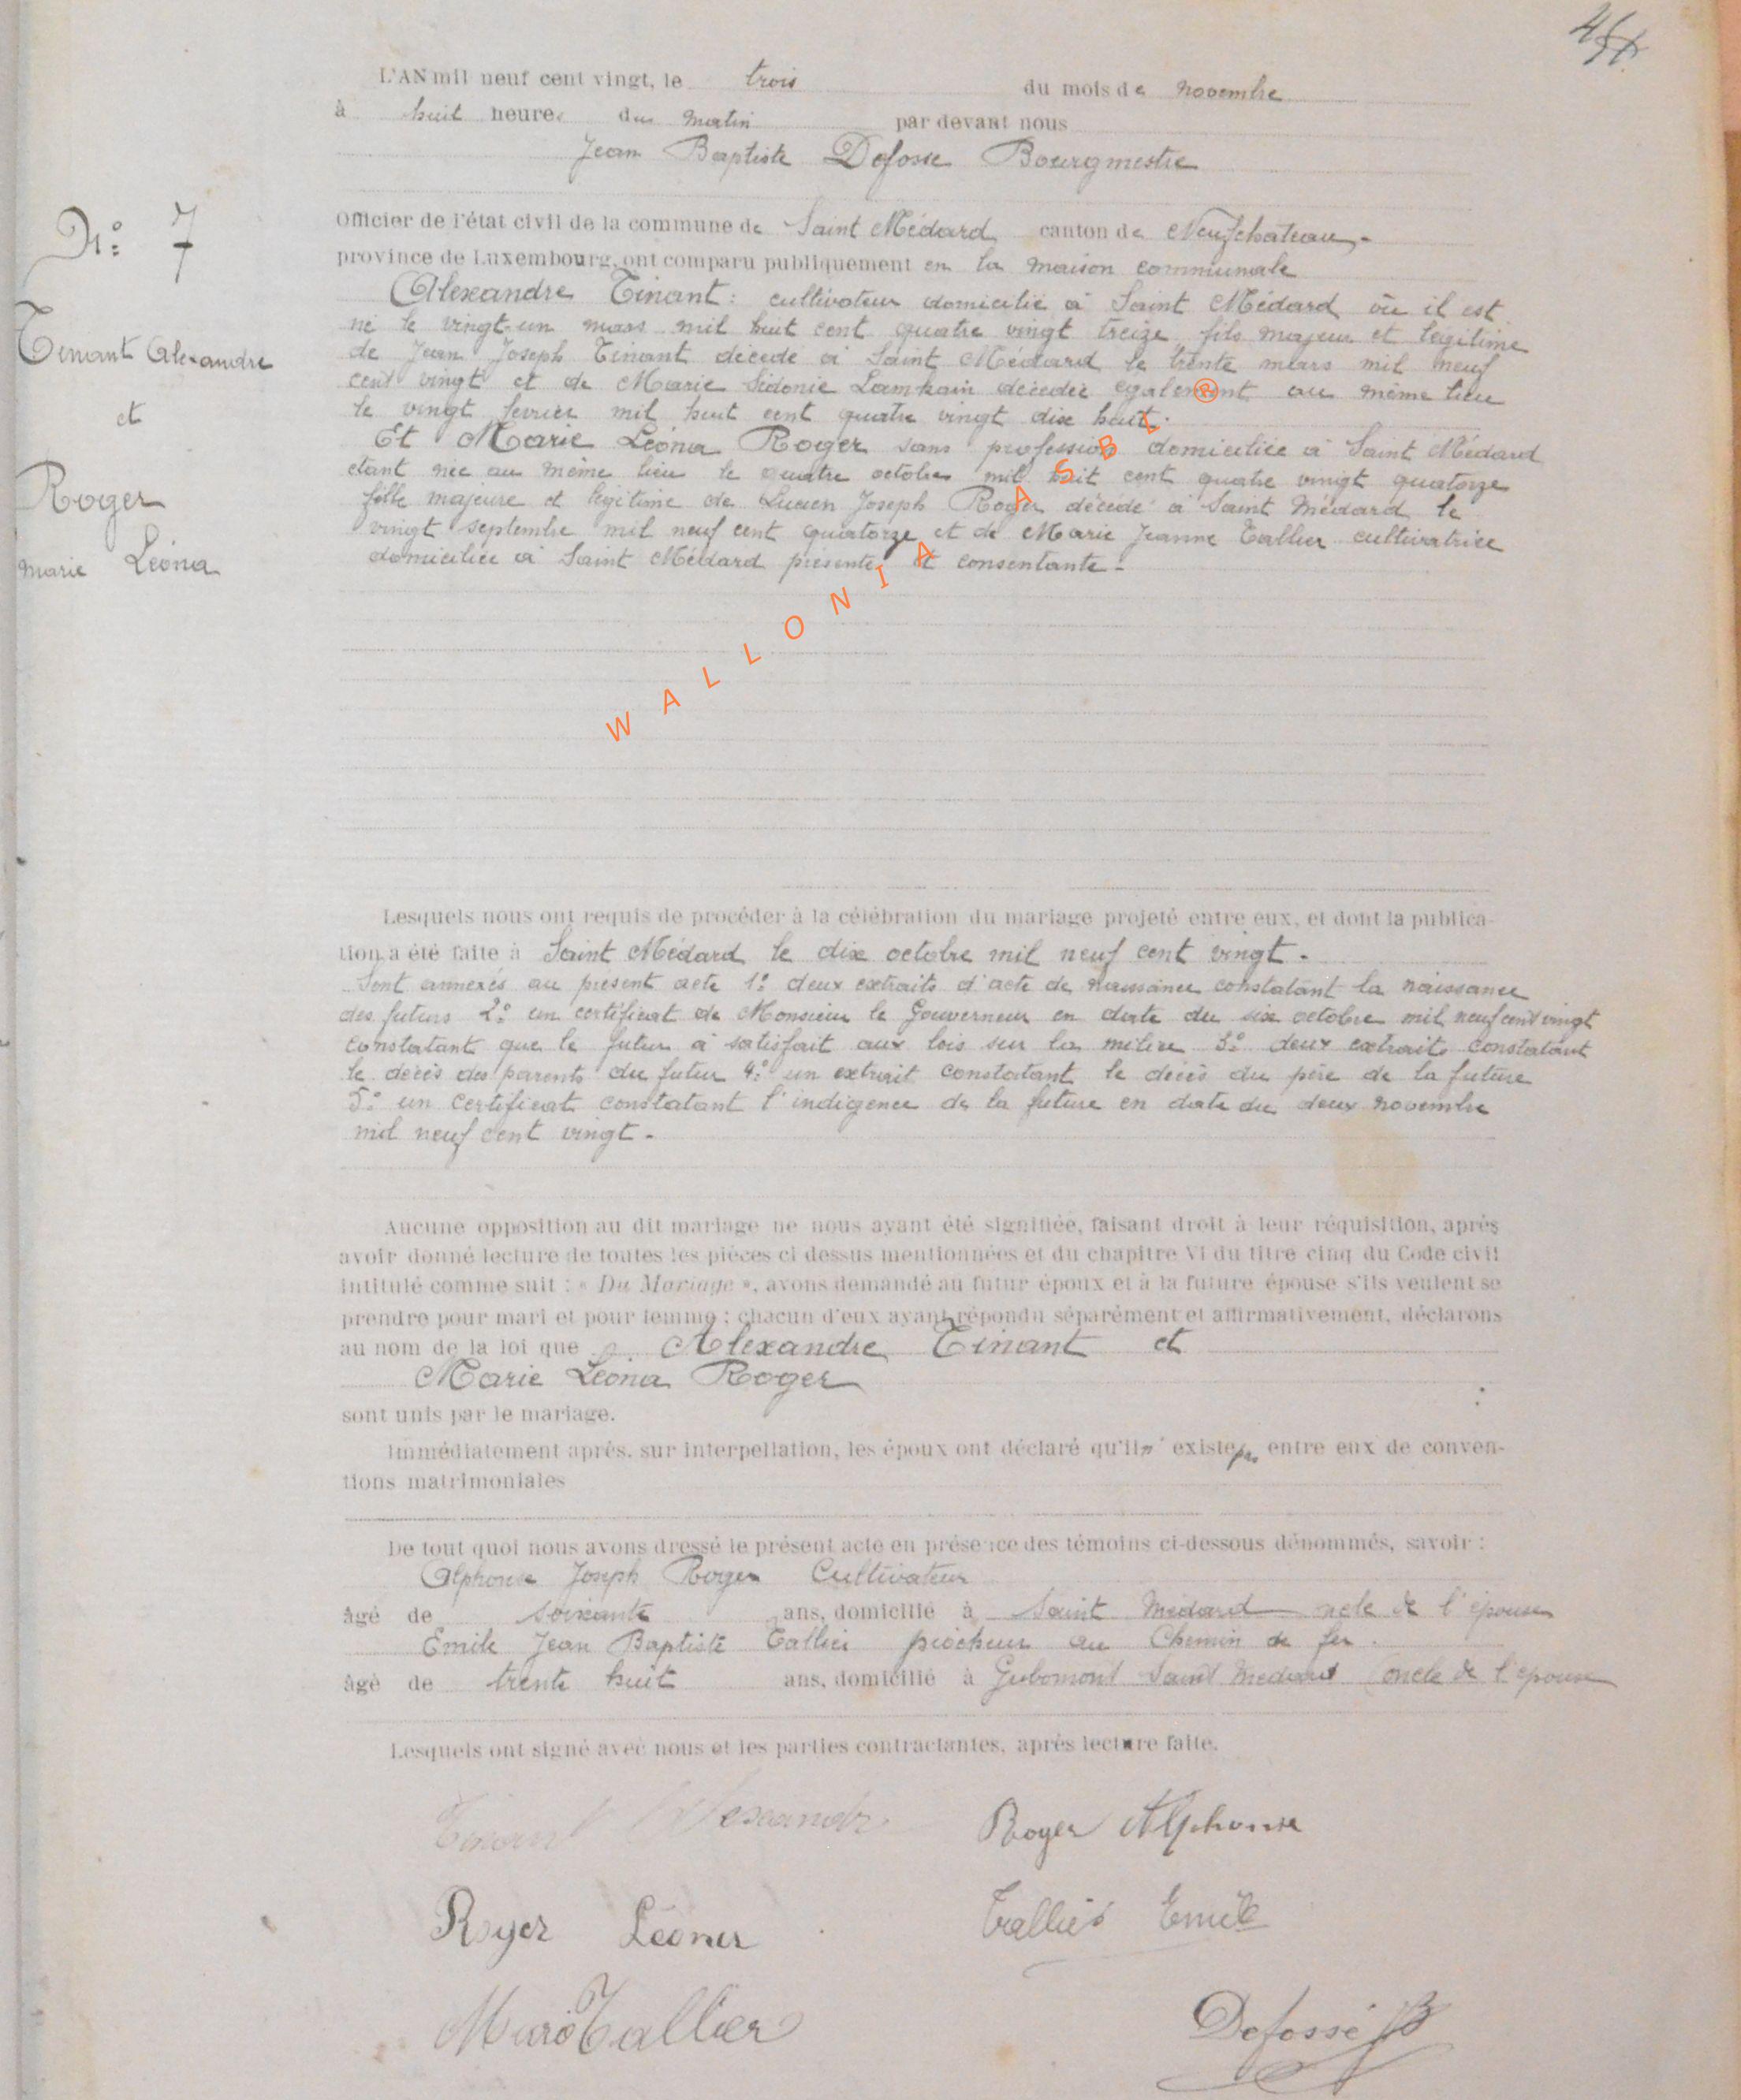 L'AN mil neuf cent vingt, le trois du mois de novembre
à huit heures du matin par devant nous
Jean Baptiste Defosse Bourgmestre
Officier de l'état civil de la commune de Saint Médard canton de Neufchateau -
province de Luxembourg, ont comparu publiquement en la maison communale
Alexandre Tinant : cultivateur domicilié à Saint Médard où il est
né le vingt-un mars mil huit cent quatre vingt treize fils majeur et légitime
de Jean Joseph Tinant décédé à Saint Médard le trente mars mil neuf
cent vingt et de Marie Sidonie Lamkain décédée également au même lieu
le vingt fevrier mil huit cent quatre vingt dix huit.
Et Marie Léona Roger sans profession domiciliée à Saint Médard
étant née au même lieu le quatre octobre mil huit cent quatre vingt quatorze
fille majeure et légitime de Lucien Joseph Roger décédé à Saint Médard le
vingt septembre mil neuf cent quatorze et de Marie Jeanne Tallier cultivatrice
domiciliée à Saint Médard présente et consentante -
N° 7
Tinant Alexandre
et
Roger
Marie Léona
WALLONIA ASBL ®
Lesquels nous ont requis de procéder à la célébration du mariage projeté entre eux, et dont la publica-
tion a été faite à Saint Médard le dix octobre mil neuf cent vingt -
Sont annexés au présent acte 1° deux extraits d'acte de naissance constatant la naissance
des futurs 2° un certificat de Monsieur le Gouverneur en date du six octobre mil neuf cent vingt
constatant que le futur a satisfait aux lois sur la milice 3° deux extraits constatant
le décès des parents du futur 4° un extrait constatant le décès du père de la future
5° un certificat constatant l'indigence de la future en date du deux novembre
mil neuf cent vingt -
Aucune opposition au dit mariage ne nous ayant été signifiée, faisant droit à leur réquisition, après
avoir donné lecture de toutes les pièces ci dessus mentionnées et du chapitre VI du titre cinq du Code civil
intitulé comme suit : « Du Mariage », avons demandé au futur époux et à la future épouse s'ils veulent se
prendre pour mari et pour femme ; chacun d'eux ayant répondu séparément et affirmativement, déclarons
au nom de la loi que Alexandre Tinant et
Marie Léona Roger
sont unis par le mariage.
Immédiatement après, sur interpellation, les époux ont déclaré qu'il n'existe pas entre eux de conven-
tions matrimoniales
De tout quoi nous avons dressé le présent acte en présence des témoins ci-dessous dénommés, savoir :
Alphonse Joseph Roger Cultivateur
âgé de soixante ans, domicilié à Saint Médard oncle de l'épouse
Emile Jean Baptiste Tallier piocheur au Chemin de fer.
âgé de trente huit ans, domicilié à Gribomont Saint Médard oncle de l'épouse
Lesquels ont signé avec nous et les parties contractantes, après lecture faite.
Tinant Alexandre
Roger Alphonse
Roger Léona
Tallier Emile
Marie Tallier
Defossé JB